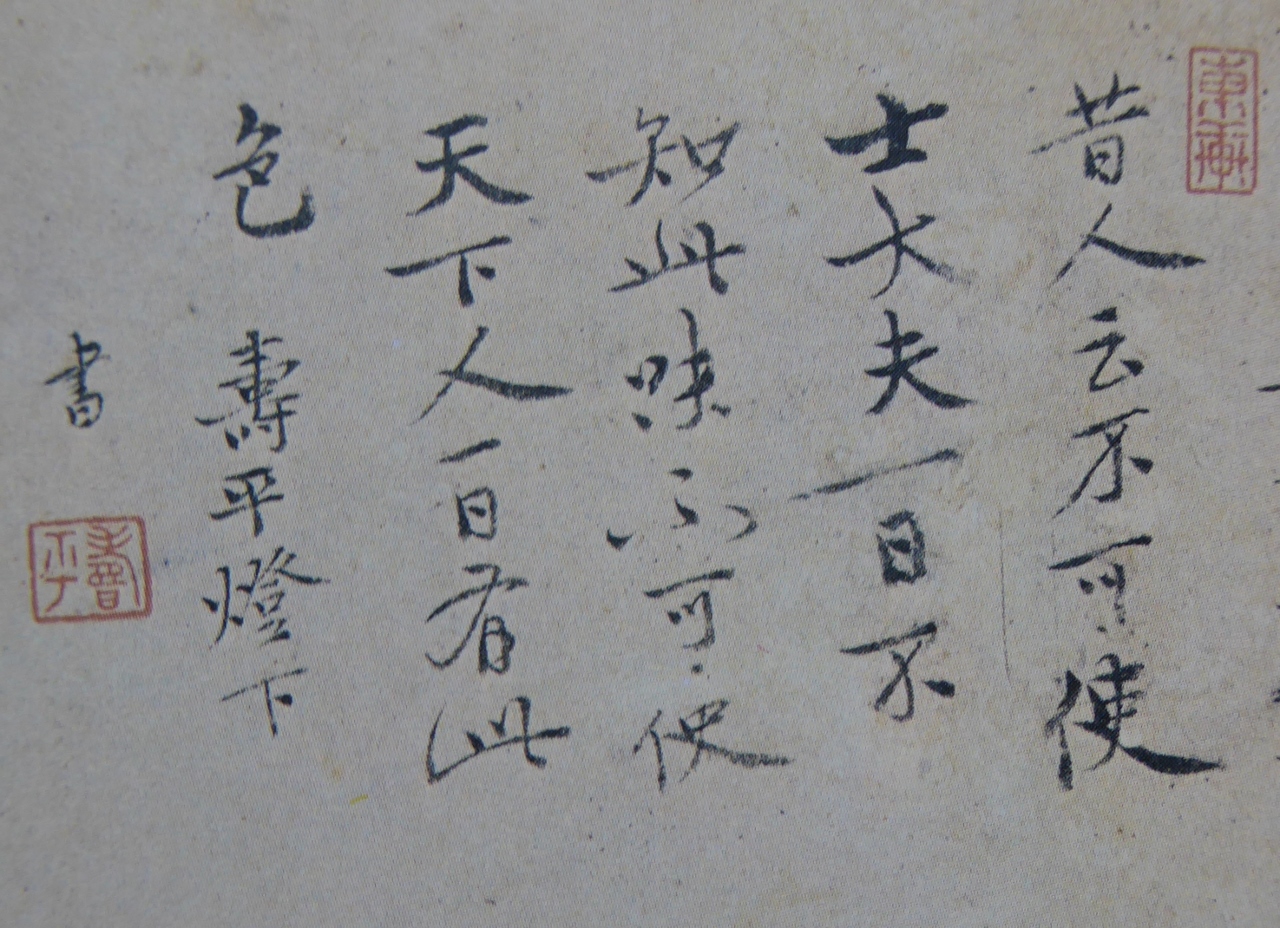 昔人云不可使
士大夫一日不
知此味不可使
天下人一日有此
色 壽平燈下
書
壽平